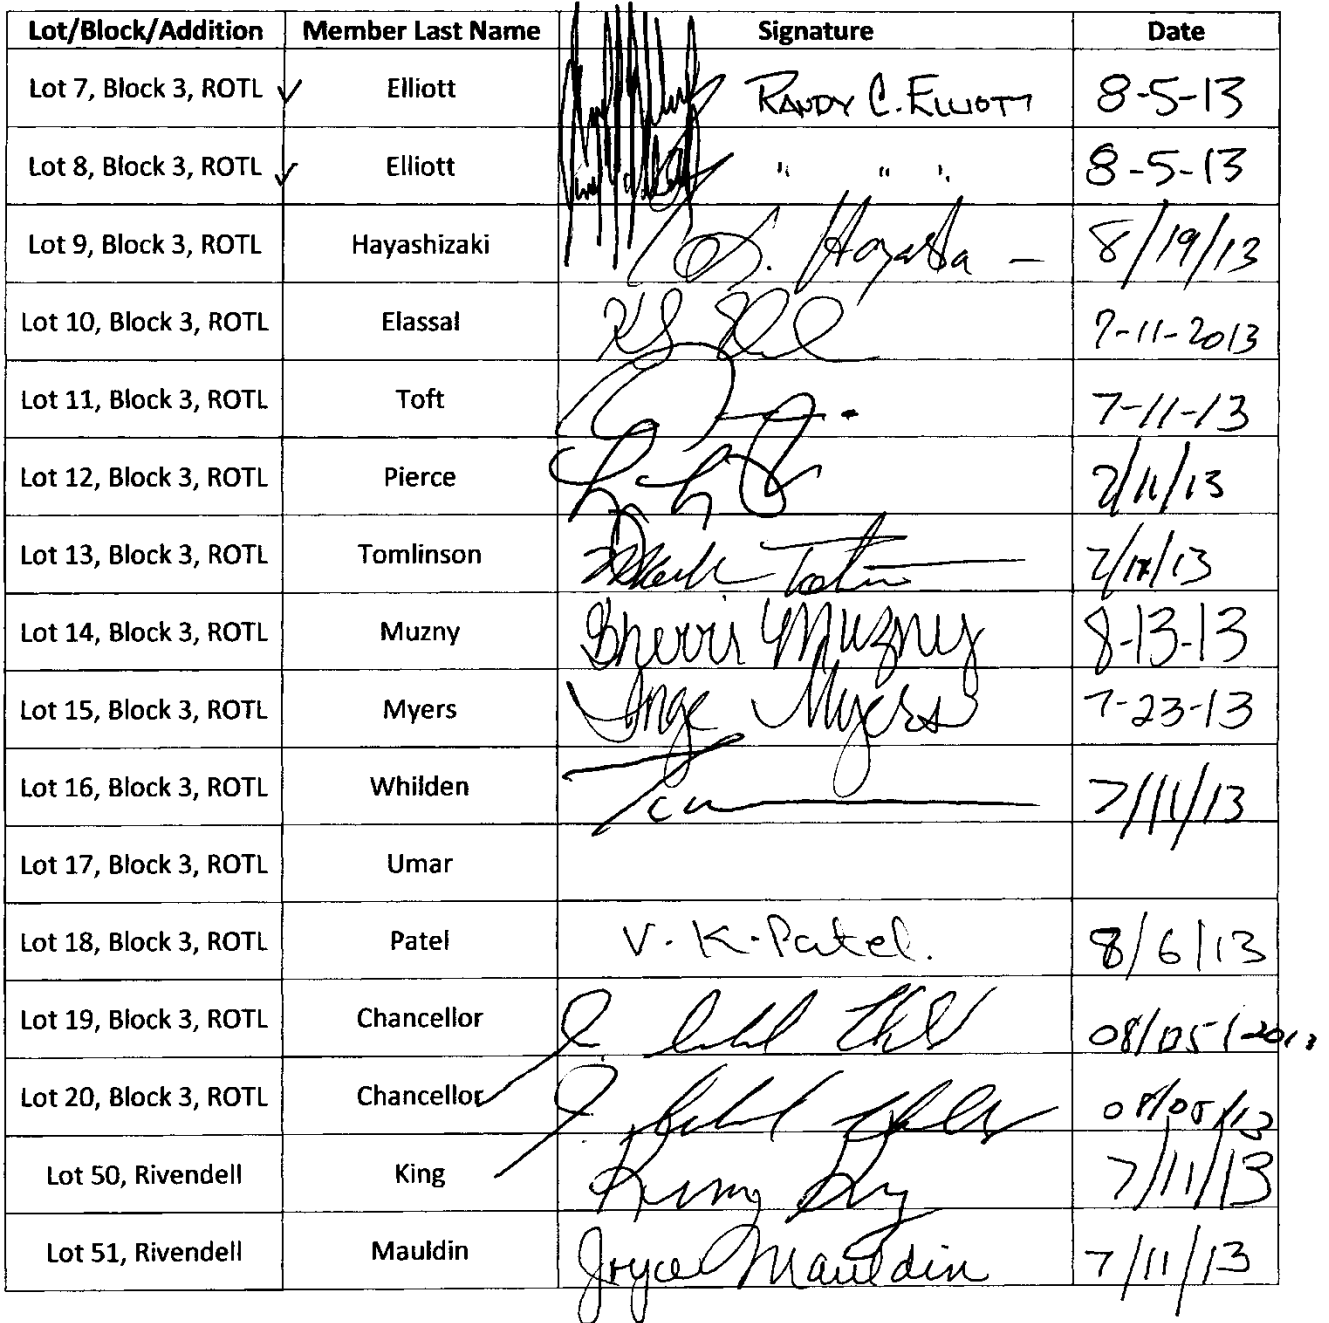 Lot/Block/Addition Member Last Name Signature Date
Lot 7, Block 3, ROTL ✓ Elliott RANDY C. ELLIOTT 8-5-13
Lot 8, Block 3, ROTL ✓ Elliott " " " 8-5-13
Lot 9, Block 3, ROTL Hayashizaki 8/19/13
Lot 10, Block 3, ROTL Elassal 7-11-2013
Lot 11, Block 3, ROTL Toft 7-11-13
Lot 12, Block 3, ROTL Pierce 7/11/13
Lot 13, Block 3, ROTL Tomlinson 7/11/13
Lot 14, Block 3, ROTL Muzny Sherri Muzny 8-13-13
Lot 15, Block 3, ROTL Myers Inge Myers 7-23-13
Lot 16, Block 3, ROTL Whilden 7/11/13
Lot 17, Block 3, ROTL Umar
Lot 18, Block 3, ROTL Patel V. K. Patel. 8/6/13
Lot 19, Block 3, ROTL Chancellor 08/05/2013
Lot 20, Block 3, ROTL Chancellor 08/05/13
Lot 50, Rivendell King 7/11/13
Lot 51, Rivendell Mauldin Joyce Mauldin 7/11/13